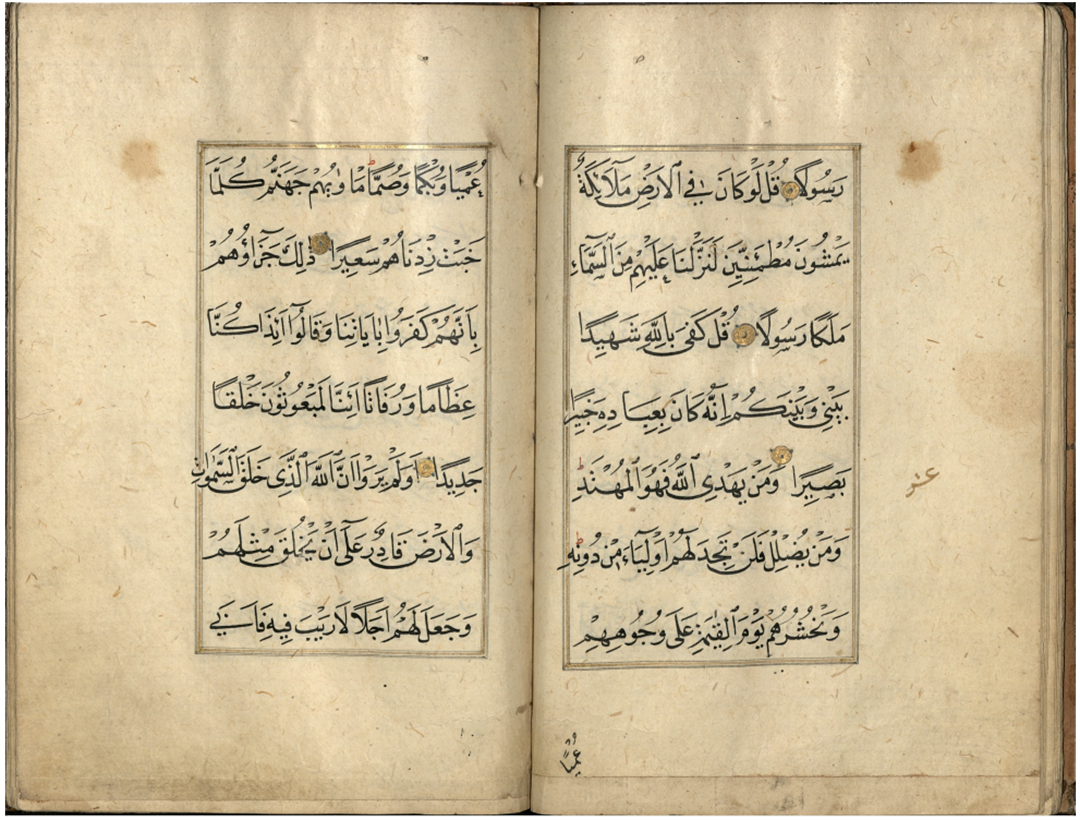 رَسُولًا قُلْ لَوْ كَانَ فِي ٱلْاَرْضِ مَلَآئِكَةٌ
يَمْشُونَ مُطْمَئِنِّينَ لَنَزَّلْنَا عَلَيْهِمْ مِنَ ٱلسَّمَآءِ
مَلَكًا رَسُولًا قُلْ كَفٰى بِاللّٰهِ شَهِيدًا
بَيْنِي وَبَيْنَكُمْ اِنَّهُ كَانَ بِعِبَادِهِ خَبِيرًا
بَصِيرًا وَمَنْ يَهْدِى ٱللّٰهُ فَهُوَ ٱلْمُهْتَدِ
وَمَنْ يُضْلِلْ فَلَنْ تَجِدَ لَهُمْ اَوْلِيَآءَ مِنْ دُونِهِ
وَنَحْشُرُهُمْ يَوْمَ ٱلْقِيٰمَةِ عَلَى وُجُوهِهِمْ
عُمْيًا
عُمْيًا وَبُكْمًا وَصُمًّا مَاْوٰيهُمْ جَهَنَّمُ كُلَّمَا
خَبَتْ زِدْنَاهُمْ سَعِيرًا ذٰلِكَ جَزَآؤُهُمْ
بِاَنَّهُمْ كَفَرُوا بِاٰيَاتِنَا وَقَالُوٓا اَئِذَا كُنَّا
عِظَامًا وَرُفَاتًا اَئِنَّا لَمَبْعُوثُونَ خَلْقًا
جَدِيدًا اَوَلَمْ يَرَوْا اَنَّ ٱللّٰهَ ٱلَّذِى خَلَقَ ٱلسَّمٰوَاتِ
وَٱلْاَرْضَ قَادِرٌ عَلٰٓى اَنْ يَخْلُقَ مِثْلَهُمْ
وَجَعَلَ لَهُمْ اَجَلًا لَا رَيْبَ فِيهِ فَاَبَى